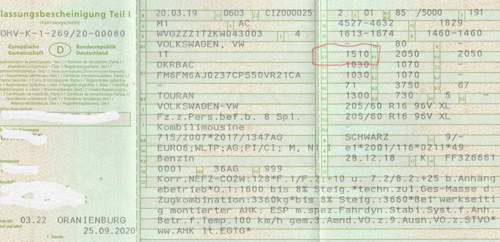 lassungsbescheinigung Teil I
(Fahrzeugschein)
OHV-K-1-269/20-00080
Europäische Gemeinschaft D Bundesrepublik Deutschland
03.22 ORANIENBURG
25.09.2020
20.03.19 0603 CIZ000025 2 01 85 /5000 191
M1 AC 4527-4632 1829
WVGZZZ1TZKW043003 4 1613-1674 1460-1460
VOLKSWAGEN, VW 80 -
1T 1510 2050 2050
DKRBAC 1030 1070
FM6FM6AJ0237CPS50VR21CA 1030 1070
- 71 3750 67
- 1300 730 5
TOURAN 205/60 R16 96V XL
VOLKSWAGEN-VW 205/60 R16 96V XL
Fz.z.Pers.bef.b. 8 Spl. -
Kombilimousine
715/2007*2017/1347AG SCHWARZ 9/-
EURO6;WLTP;AG;PI/CI; M, N1 I e1*2001/116*0211*49
Benzin 28.12.18 K FF326661
0001 36AG 999
Korr.NEFZ-CO2W:128*F.1/F.2:+10 u. 7.2/8.2:+25 b.Anhäng
ebetrieb*O.1:1600 bis 8% Steig.*techn.zul.Ges-Masse d.
Zugkombination:3360kg*bis 8% Steig.:3660*Bei werkseiti
g montierter AHK: ESP m.spez.Fahrdyn.Stabi.Syst.f.Anh.
Betr.f.Temp.100 km/h gem.3.Aend.VO.z.9.Ausn.VO.z.STVO*
ww.AHK lt.EGTG*